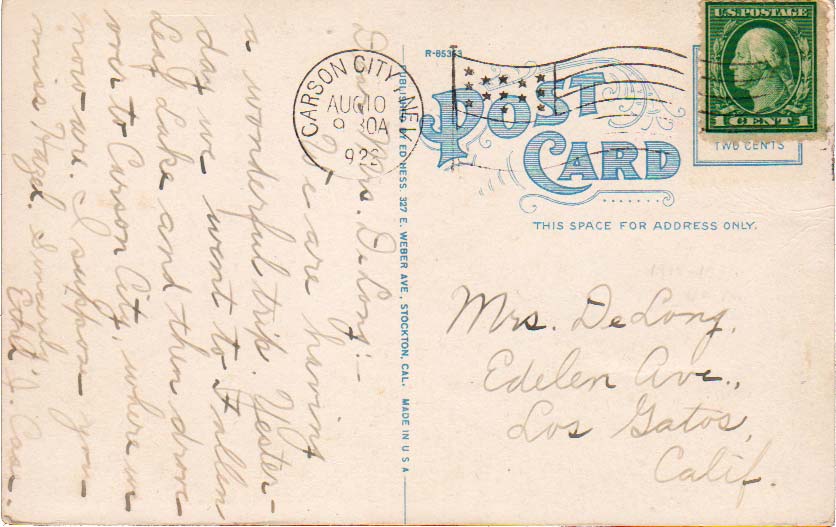 Dear Mrs. DeLong:-
We are having
a wonderful trip. Yester-
day we went to Fallen
Leaf Lake and then drove
over to Carson City, where we
now are. I suppose you
miss Hazel. Sincerely,
Ethel J. Case.
PUBLISHED BY ED HESS. 327 E. WEBER AVE., STOCKTON, CAL. MADE IN U S A
R-85353
CARSON CITY, NEV.
AUG 10
9 30A
922
U.S. POSTAGE
1 CENT 1
TWO CENTS
POST
CARD
THIS SPACE FOR ADDRESS ONLY.
Mrs. DeLong,
Edelen Ave.,
Los Gatos,
Calif.